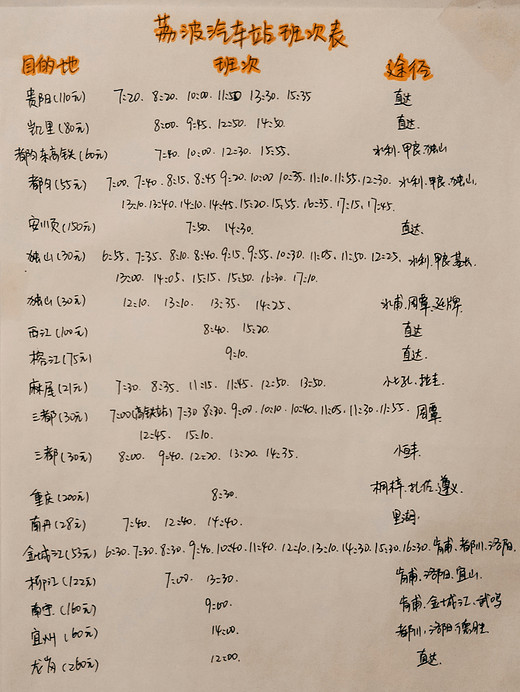 荔波汽车站班次表
目的地 班次 途径
贵阳(110元) 7:20、8:20、10:00、11:50 13:30、15:35 直达
凯里(80元) 8:00、9:45、12:50、14:50. 直达.
都匀东高铁(60元) 7:40、10:00、12:30、15:55. 水利、甲良、独山
都匀(55元) 7:00、7:40、8:15、8:45 9:20、10:00 10:35、11:10、11:55、12:30、水利、甲良、独山.
13:10、13:40、14:10、14:45、15:20、15:55、16:35、17:15、17:45.
安顺(150元) 7:50、14:30. 直达.
独山(30元) 6:55、7:35、8:10、8:40、9:15、9:55、10:30、11:05、11:50、12:25、水利、甲良、基长.
13:00、14:05、15:15、15:50、16:30、17:10.
独山(30元) 12:10、13:10、13:35、14:25、 水甫、周覃、延牌
西江(100元) 8:40、15:20. 直达
榕江(75元) 9:10. 直达.
麻尾(21元) 7:30、8:35、11:15、11:45、12:50、13:50. 小七孔、
三都(30元) 7:00(高铁站) 7:30 8:30、9:00、10:10、10:40、11:05、11:30、11:55、周覃
12:45、15:10.
三都(30元) 8:00、9:40、12:20、13:20、14:35. 恒丰.
重庆(200元) 8:30. 桐梓、扎佐、遵义.
南丹(28元) 7:40、12:40、14:40. 里湖.
金城江(53元) 6:30、7:30、8:30、9:40、10:40、11:40、12:10、13:10、14:30、15:30、16:30、肯甫、都川、洛阳.
柳江(122元) 7:00、13:30. 肯甫、洛阳、宜山.
南宁(160元) 9:00. 肯甫、金城江、武鸣
宜州(60元) 14:00. 都川、洛阳、德胜
龙岗(260元) 12:00. 直达.